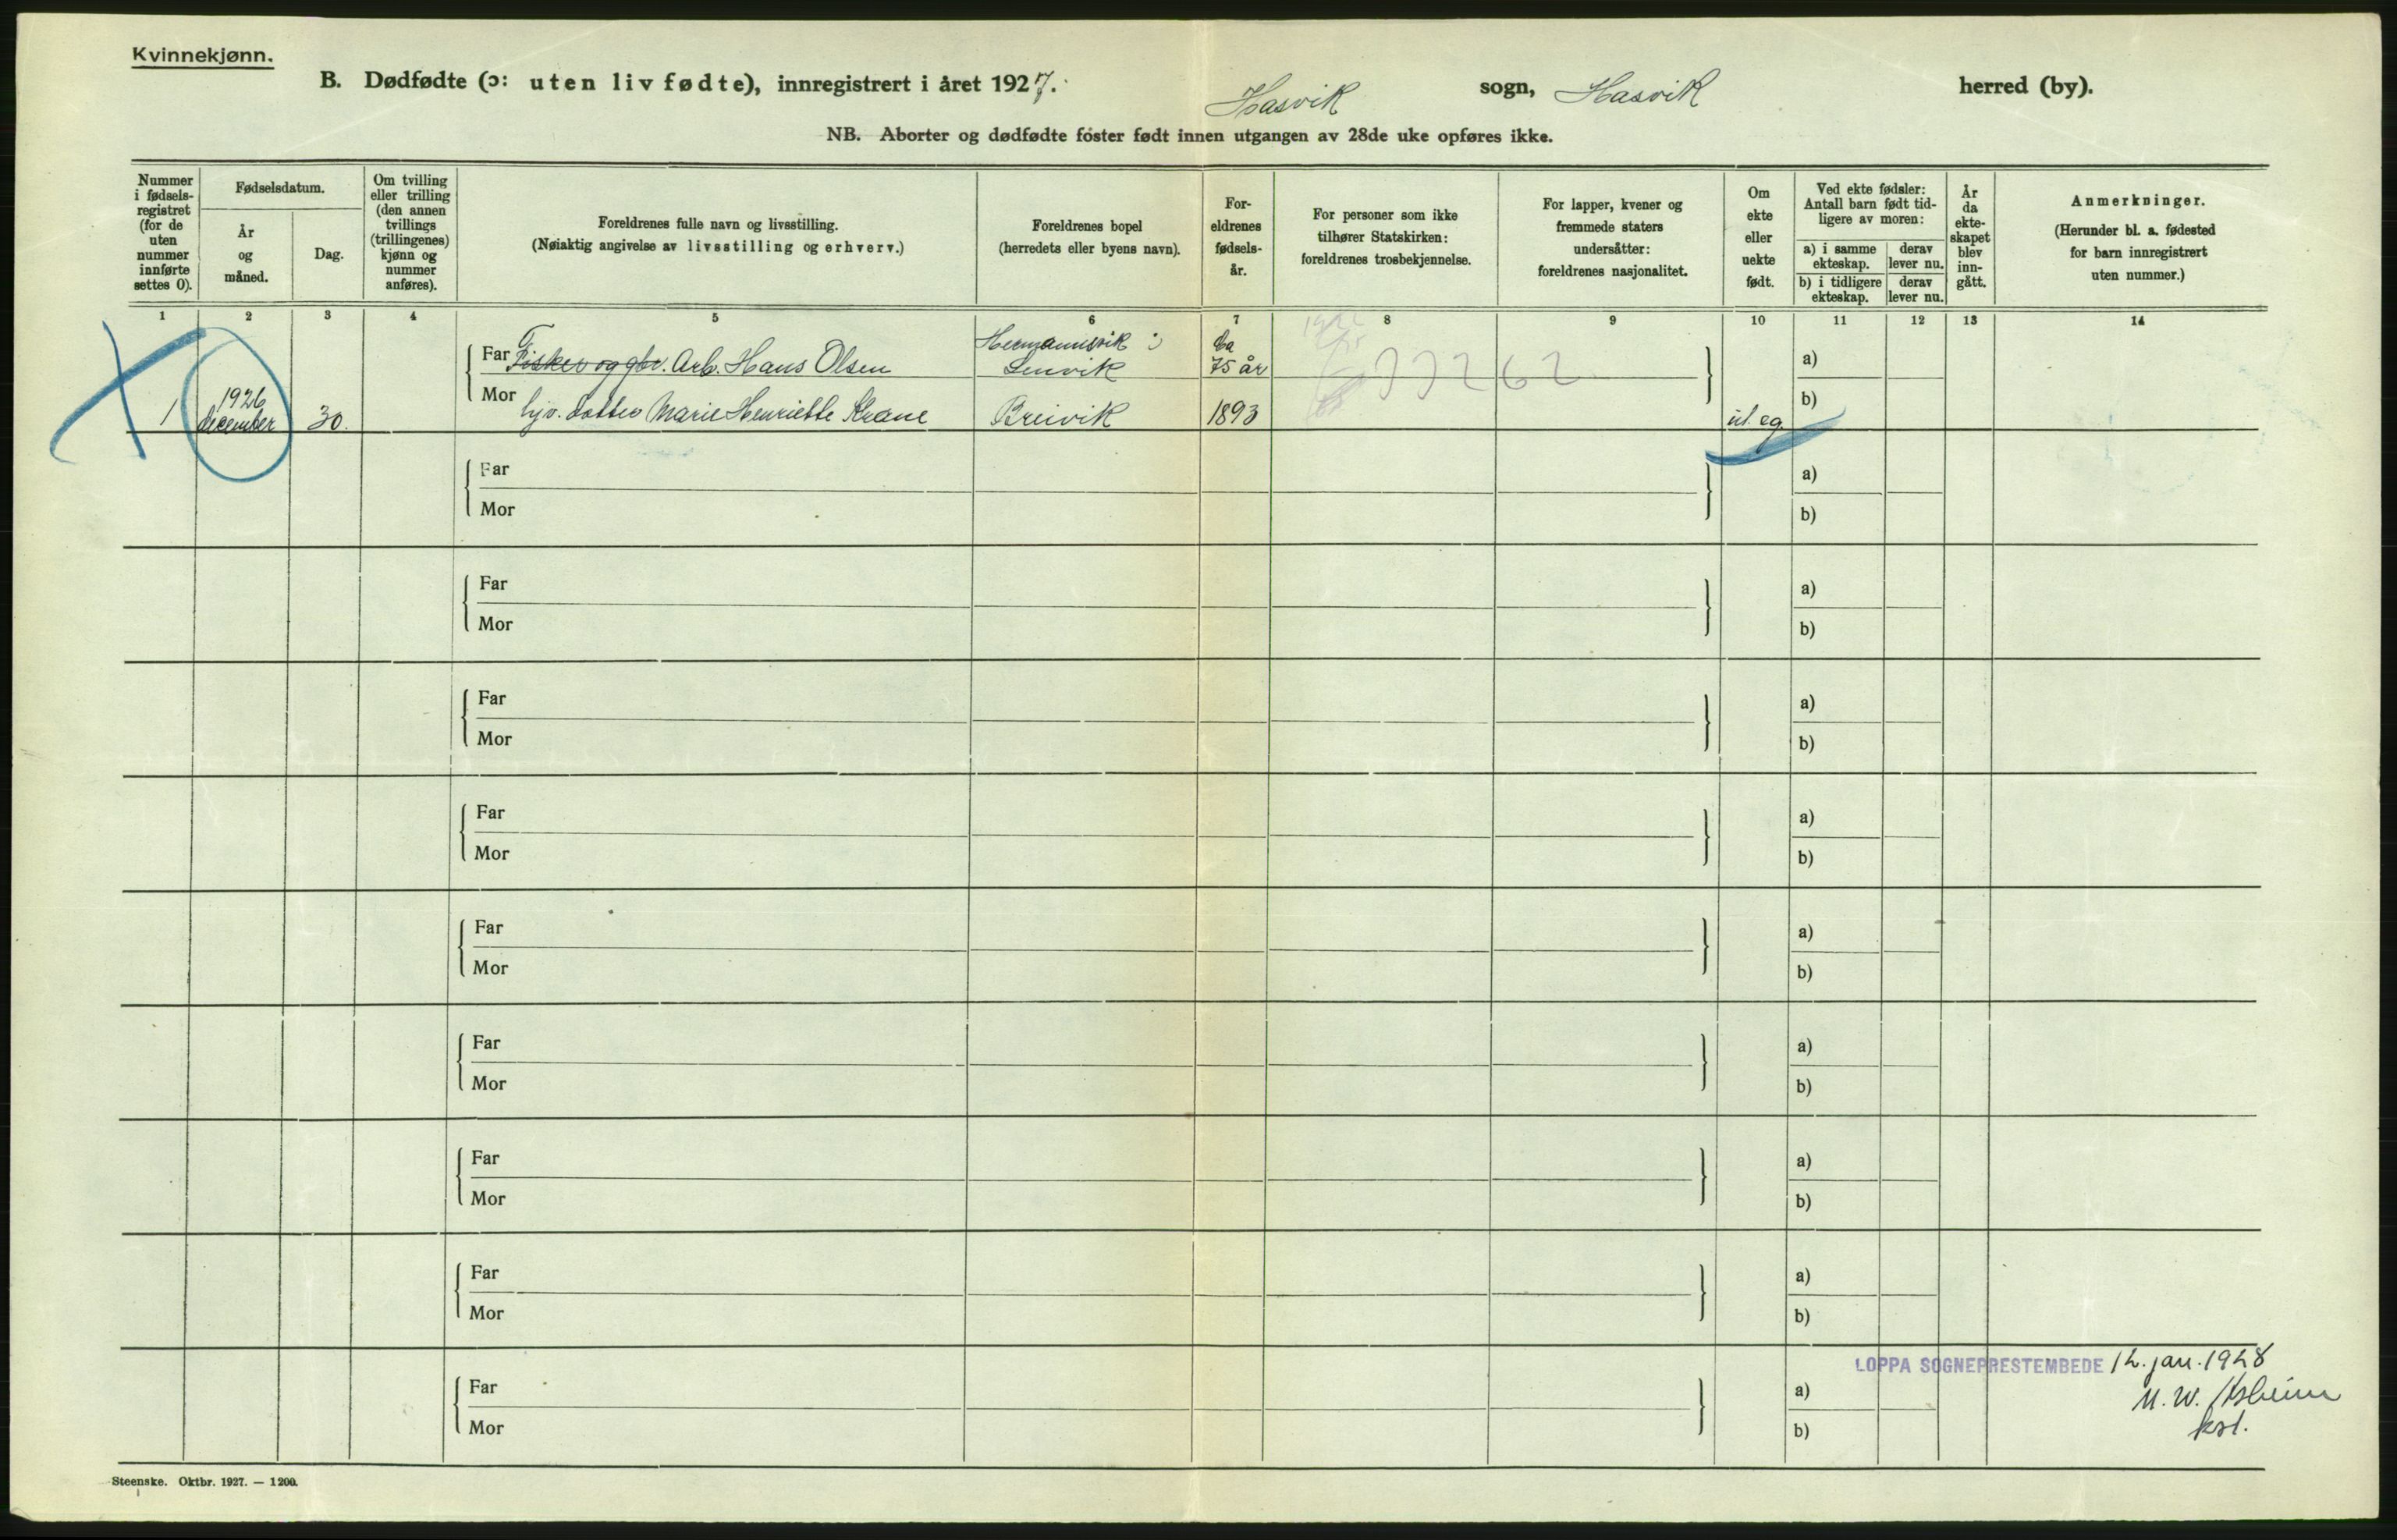 Kvinnekjønn.
B. Dødfødte (ɔ: uten liv fødte), innregistrert i året 1927. Hasvik sogn, Hasvik herred (by).
NB. Aborter og dødfødte foster født innen utgangen av 28de uke opføres ikke.
Nummer i fødselsregistret (for de uten nummer innførte settes 0).
Fødselsdatum.
År og måned.
Dag.
Om tvilling eller trilling (den annen tvillings (trillingenes) kjønn og nummer anføres).
Foreldrenes fulle navn og livsstilling.
(Nøiaktig angivelse av livsstilling og erhverv.)
Foreldrenes bopel
(herredets eller byens navn).
Foreldrenes fødselsår.
For personer som ikke tilhører Statskirken: foreldrenes trosbekjennelse.
For lapper, kvener og fremmede staters undersåtter: foreldrenes nasjonalitet.
Om ekte eller uekte født.
Ved ekte fødsler: Antall barn født tidligere av moren:
a) i samme ekteskap.
derav lever nu.
b) i tidligere ekteskap.
derav lever nu.
År da ekteskapet blev inngått.
Anmerkninger.
(Herunder bl. a. fødested for barn innregistrert uten nummer.)
1 2 3 4 5 6 7 8 9 10 11 12 13 14
Far Fisker og gbr. Arb. Hans Olsen Hermannsvik i Lenvik ca 75 år a)
1 1926 december 30. Mor hjv. datter Marie Henriette Krane Breivik 1893 33262 u. eg. b)
Far a)
Mor b)
Far a)
Mor b)
Far a)
Mor b)
Far a)
Mor b)
Far a)
Mor b)
Far a)
Mor b)
Far a)
Mor b)
Far a)
Mor b)
LOPPA SOGNEPRESTEMBEDE 12. jan. 1928
Far a)
Mor b)
kst.
Steenske. Oktbr. 1927. — 1200.